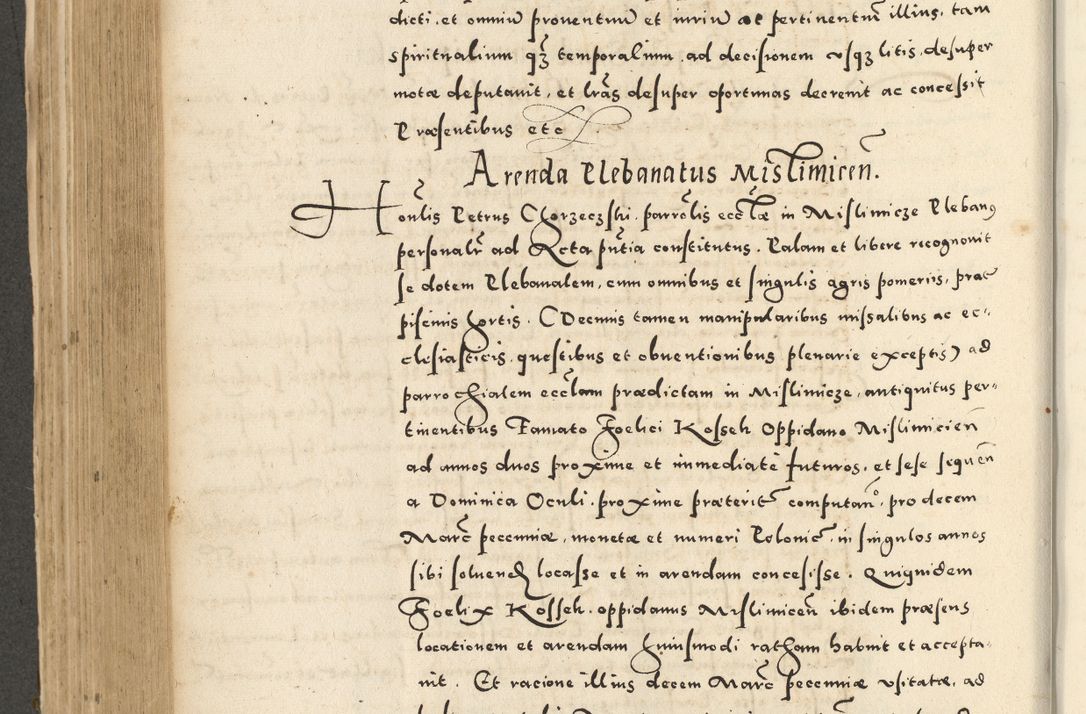 dicti, et omniũ proventuũ et iuriũ ac pertinentiũ illius, tam
spiritualium qz temporalium, ad decisionem usqz litis, desuper
motæ deputavit, et lr̃as desuper oportunas decrevit ac concessit
Præsentibus etc
Arenda Plebanatus Mislimiceñ.
Honlis Petrus Chorzeczski, parrolis eccl̃æ in Mislimicze Plebanꝰ
personalr̃ ad Acta pñtia constitutus. Palam et libere recognovit
se dotem Plebanalem, cum omnibus et singulis agris pomeriis, prat
piscinis hortis. (Decimis tamen manipularibus missalibus ac ec-
clesiasticis, questibus et obventionibus plenarie exceptis) ad
parrochialem eccl̃am prædictam in Mislimicze, antiquitus per-
tinentibus Famato Foelici Kosseh Oppidano Mislimicieñ
ad annos duos proxime et immediate futuros, et sese sequeñ
a Dominica Oculi, proxime præterit computañ, pro decem
Marc̃ pecuniæ, monetæ et numeri Polonic̃, in singulos annos
sibi solvend̃ locasse et in arendam concessisse. Quiquidem
Foelix Kosseh, oppidanus Mislimiceñ ibidem præsens
locationem et arendam huiusmodi ratham habuit et accepta-
vit. Et racione illius decem Marc̃ pecuniæ usitatæ, ad